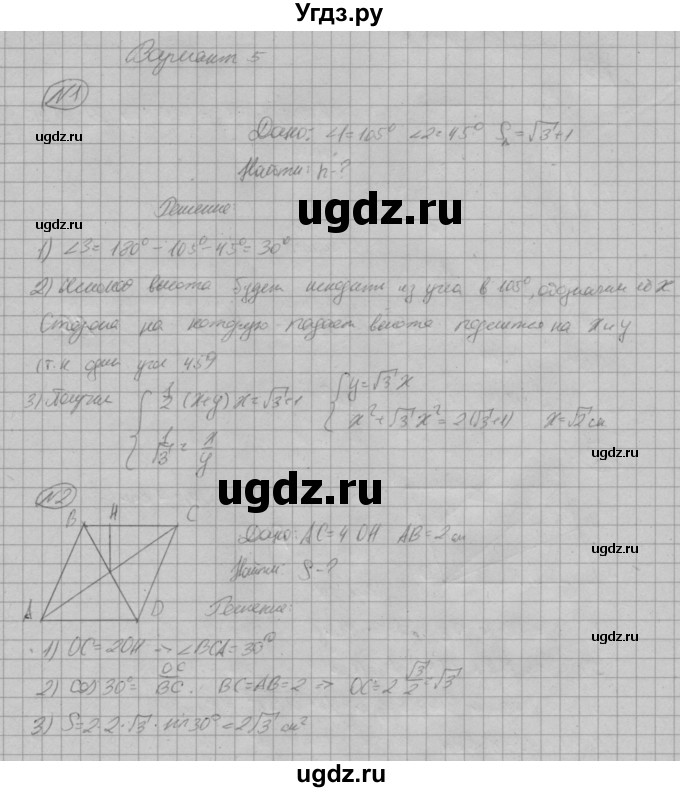 Угдз.ру
Вариант 5
№1
ugdz.ru
Дано: ∠1=105° ∠2=45° S=√3+1
Найти: h-?
ugdz.ru
ugdz.ru
Решение:
ugdz.ru
1) ∠3=180°-105°-45°=30°
2) высота будет исходить из угла в 105°, обозначим её x
Сторона на которую падает высота поделится на x и y
(т.к один угол 45°)
3) Получим { 1/2 (x+y)x=√3+1 { y=√3x
1/√3 = x/y x²+√3x²=2(√3+1) x=√2 см
ugdz.ru
№2
ugdz.ru
B H C
Дано: AC=4 OH AB=2 см
ugdz.ru
Найти: S-?
A D
Решение:
1) OC=2OH → ∠BCA=30°
2) cos30°= OC/BC. BC=AB=2 ⇒ OC=2 √3/2=√3
ugdz.ru
3) S=2·2·√3·sin30°=2√3 см²
ugdz.ru
ugdz.ru